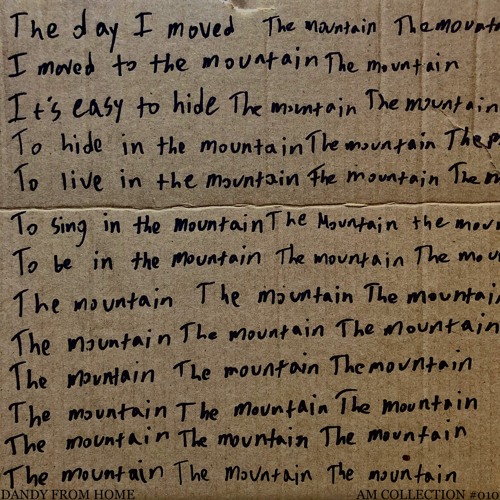 The day I moved The mountain The mount
I moved to the mountain The mountain
It's easy to hide The mountain The mountain
To hide in the mountain The mountain The
To live in the mountain The mountain The m
To sing in the mountain The Mountain the moun
To be in the mountain The mountain The mou
The mountain The mountain The mountain
The mountain The mountain The mountain
The mountain The mountain The mountain
The mountain The mountain The mountain
The mountain The mountain The mountain
The mountain The mountain The mountain
DANDY FROM HOME AM COLLECTION #010